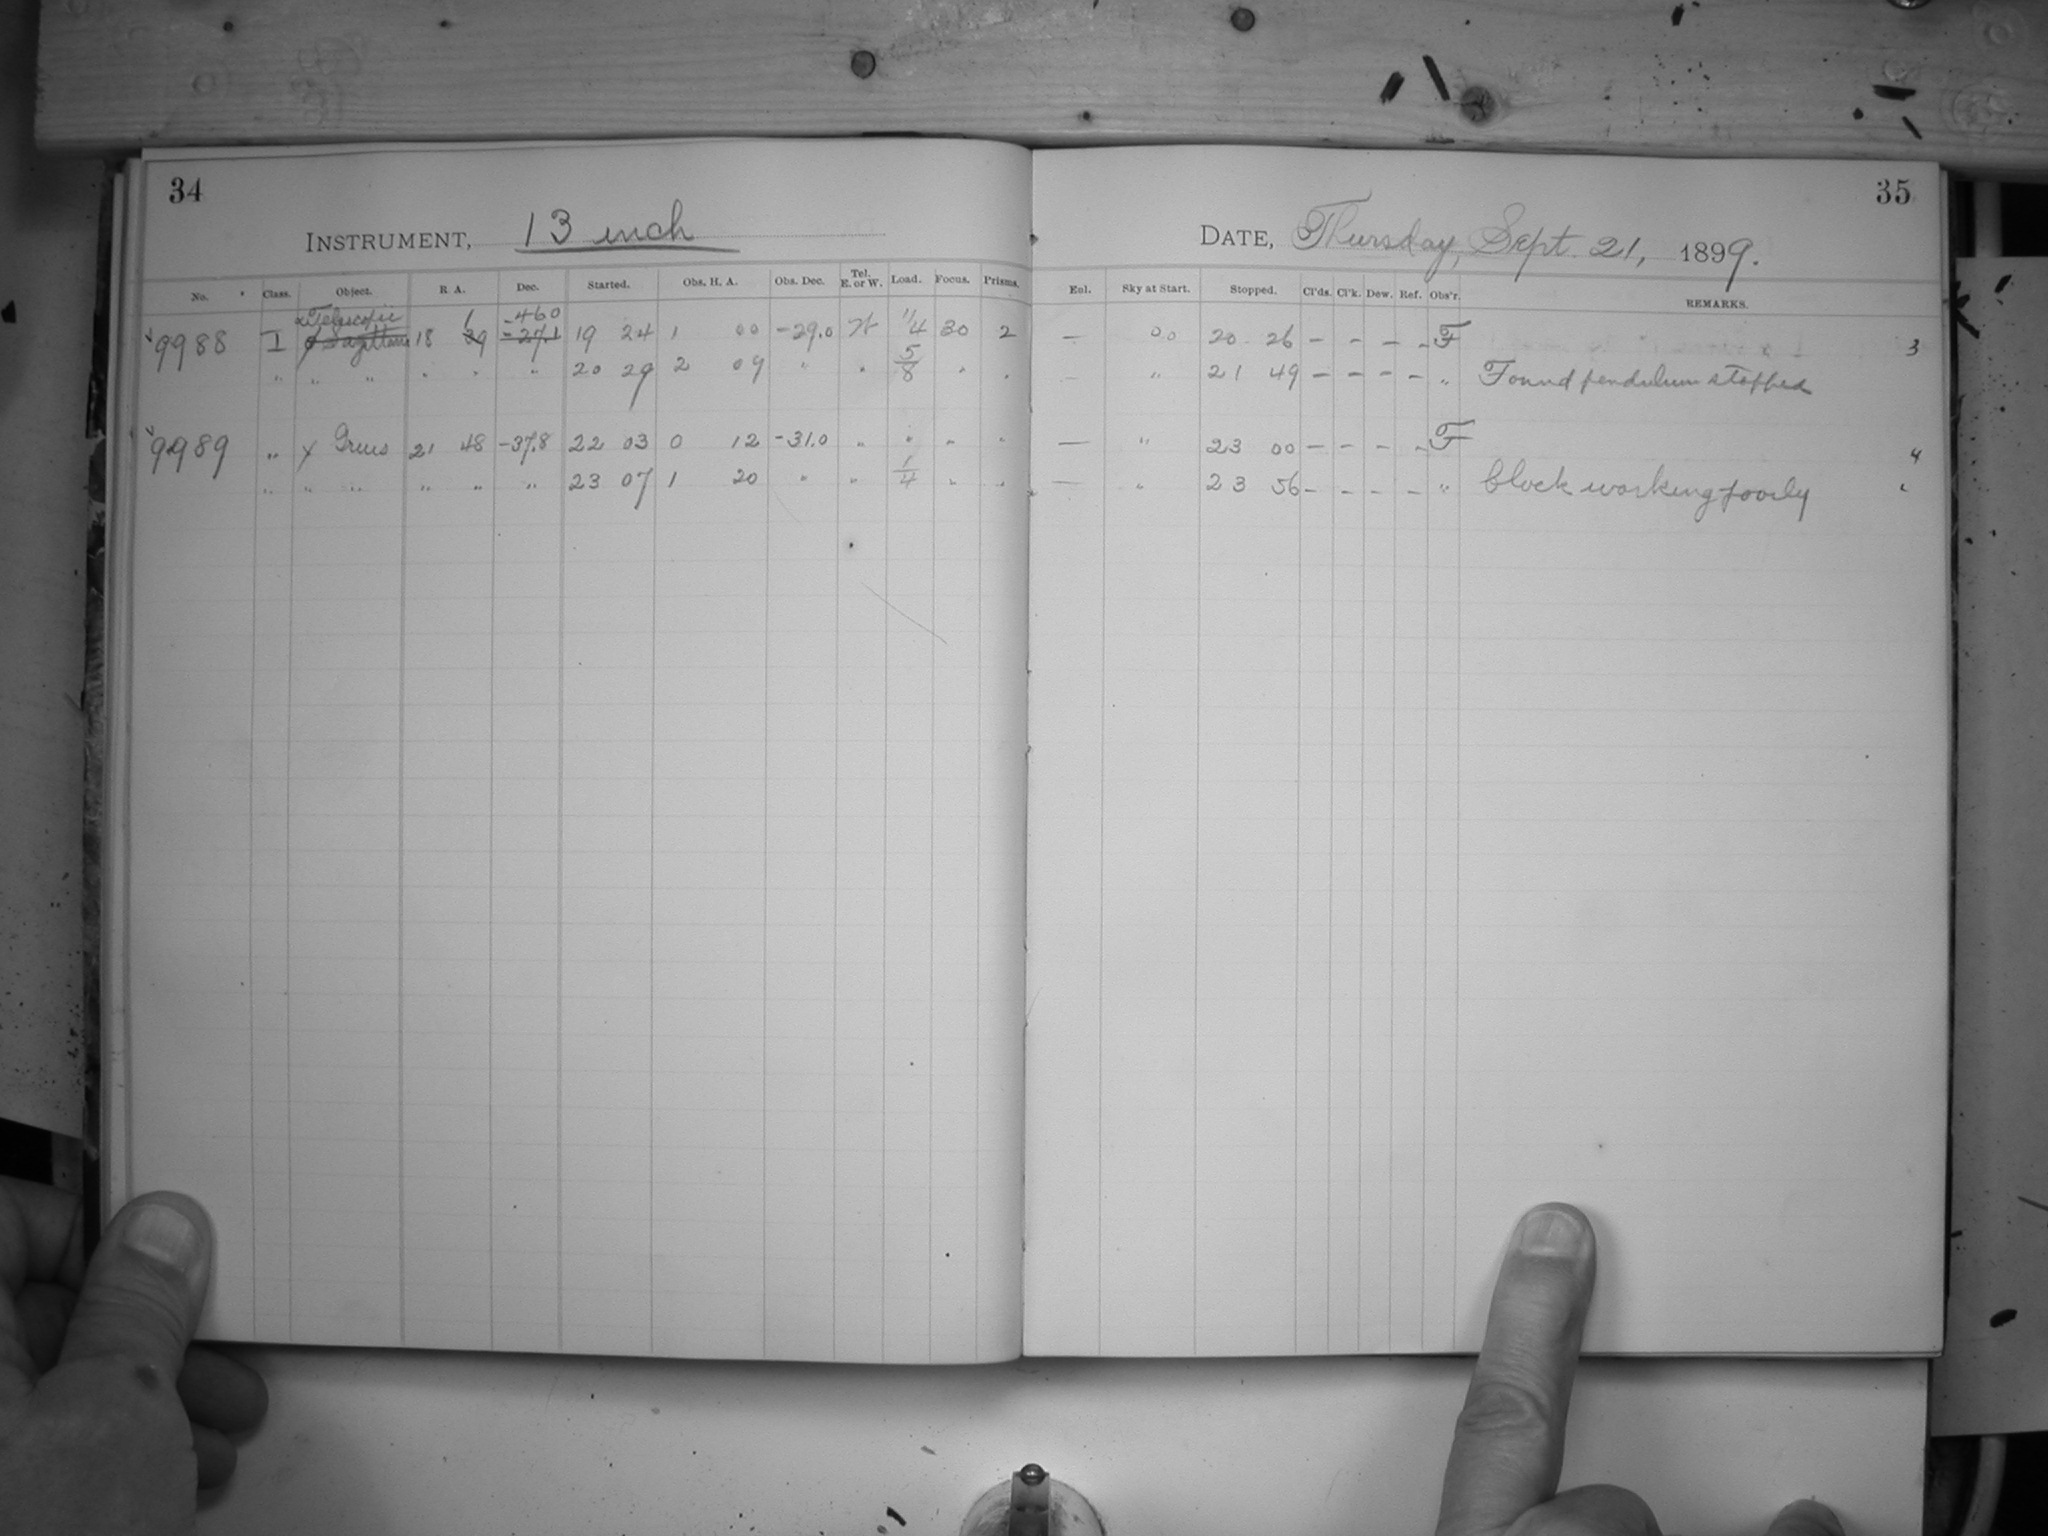 34
INSTRUMENT, 13 inch
No. Class. Object. R. A. Dec. Started. Obs. H. A. Obs. Dec. Tel. E. or W. Load. Focus. Prisms.
α Telescopic 1 -46.0
9988 I φ Sagittarii 18 39 -27.1 19 24 1 00 -29.0 W 1/4 30 2
" " " " " " 20 29 2 09 " " 5/8 " "
9989 " γ Grus 21 48 -37.8 22 03 0 12 -31.0 " " " "
" " " " " " 23 07 1 20 " " 1/4 " "
35
DATE, Thursday, Sept. 21, 1899.
Enl. Sky at Start. Stopped. Cl'ds. Cl'k. Dew. Ref. Obs'r. REMARKS.
— 00 20 26 — — — — F 3
— " 21 49 — — — — " Found pendulum stopped
— " 23 00 — — — — F 4
— " 23 56 — — — — " Clock working poorly